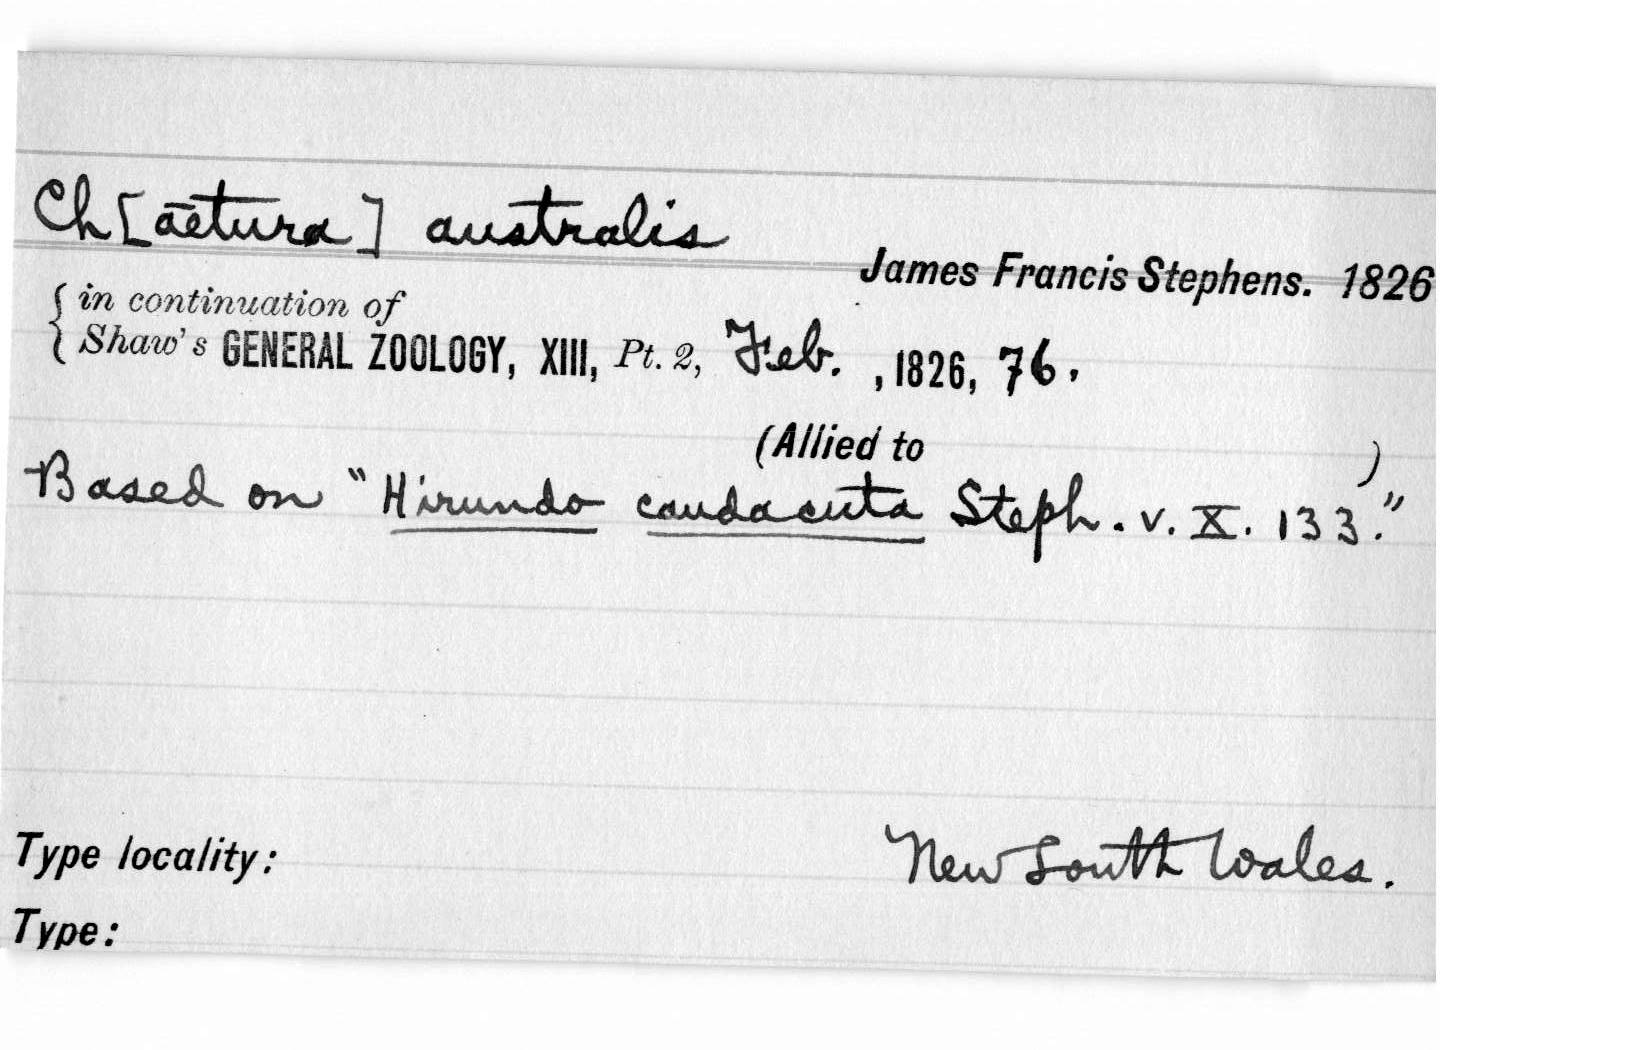 Ch[aetura] australis
James Francis Stephens. 1826
{ in continuation of
Shaw's GENERAL ZOOLOGY, XIII, Pt. 2, Feb. , 1826, 76.
(Allied to )
Based on "Hirundo caudacuta Steph. v. X. 133."
Type locality: New South Wales.
Type: